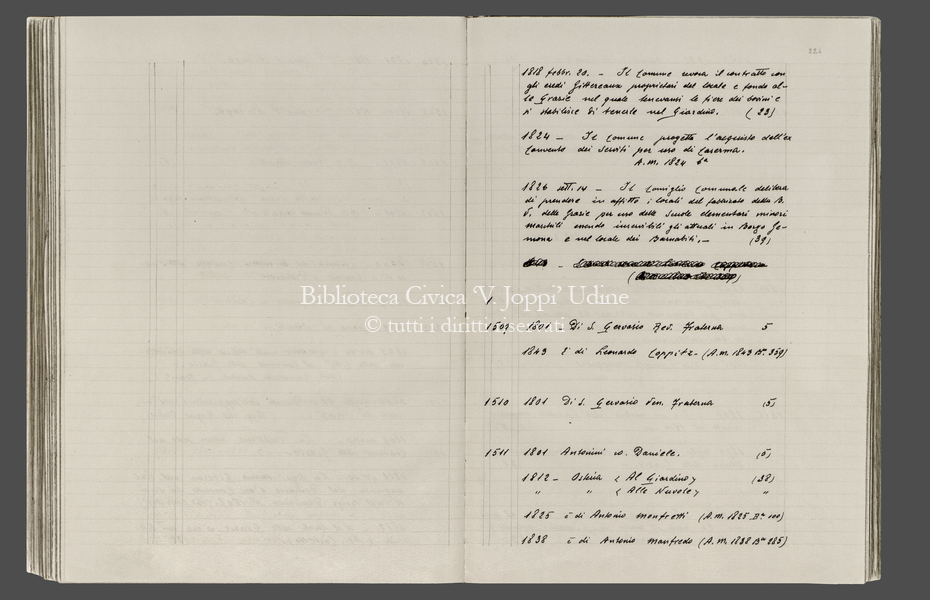 224
1818 febbr. 20. - Il Comune revoca il contratto con
gli eredi proprietari del locale e fondo al-
le Grazie nel quale tenevansi le fiere dei bovini e
si stabilisce di tenerle nel Giardino. (23)
1824 - Il Comune progetta l'acquisto dell'ex
Convento dei Serviti per uso di Caserma.
A.m. 1824
1826 sett. 14 - Il Consiglio Comunale delibera
di prendere in affitto i locali del fabbricato della B.
V. delle Grazie per uso delle Scuole elementari minori
maschili essendo inservibili gli attuali in Borgo Ge-
mona e nel locale dei Barnabiti. - (39)
Biblioteca Civica 'V. Joppi' Udine
© tutti i diritti riservati
1509 1801 Di S. Gervasio Rev. Fraterna 5
1843 È di Leonardo Coppitz - (A.m. 1843 Bª 359)
1510 1801 Di S. Gervasio Ven. Fraterna (5)
1511 1801 Antonini co. Daniele. (5)
1812 - Osteria < Al Giardino > (38)
" " < Alle Nuvole > "
1825 è di Antonio Manfretti (A.m. 1825 Bª 100)
1838 è di Antonio Manfredo (A.m. 1838 Bª 265)